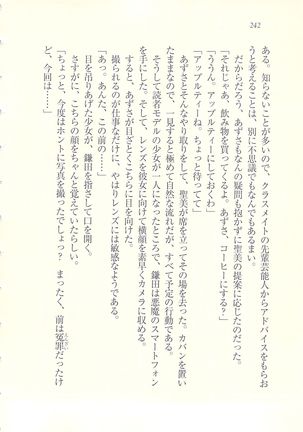 242
ある。知らないことが多いので、クラスメイトの先輩芸能人からアドバイスをもらお
うと考えることは、別に不思議でもなんでもあるまい。
だからだろう、あずさもなんの疑問も抱かずに聖美の提案に応じたのだった。
「それじゃあ、飲み物を買ってくるわ。あずさ、コーヒーにする?」
「ううん。アップルティーにしておくわ」
「アップルティーね。ちょっと待ってて」
あずさとそんなやり取りをして、聖美が席を立ってその場を去った。カバンを置い
たままなので、一見すると極めて自然な流れだが、すべて予定の行動である。
そうして読者モデルの少女が一人になったのを見て、鎌田は悪魔のスマートフォン
を手にした。そして、レンズを彼女に向けて横顔を素早くカメラに収める。
すると、あずさが目ざとくこちらに目を向けた。
撮られるのが仕事なだけに、やはりレンズには敏感なようである。
「あっ。あんた、この前の!」
目を吊りあげた少女が、鎌田を指さして口を開く。
さすがに、こちらの顔をちゃんと覚えていたらしい。
「ちょっと、今度はホントに写真を撮ったでしょっ? まったく、前は冤罪だったけ
ど、今回は⋯⋯」